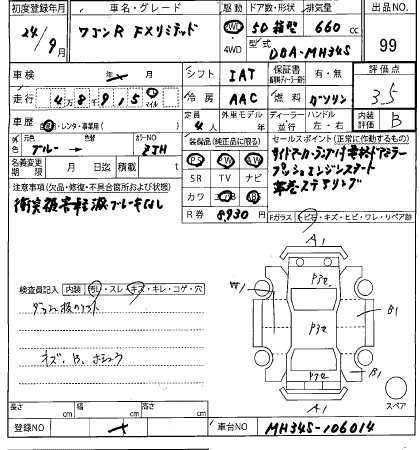 初度登録年月 車名・グレード 駆動 ドア数・形状 排気量 出品NO
24/9月 ワゴンR FXリミテッド 2WD 4WD 5D 箱型 660 cc 99
型式 DBA-MH34S
車検 年 月 シフト IAT 保証書 有・無 評価点
走行 48915 マイル 冷房 AAC 燃料 ガソリン 3.5
車歴 レンタ・事業用 定員 4人 外車モデル 年 ディーラー 並行 ハンドル 左・右 内装評価 B
色 元色 ブルー → カラーNO ZJH
装備品(純正品に限る) セールスポイント(正常に作動するもの)
名義変更期限 月 日迄 積載 t
PS PW SR TV ナビ カワ
注意事項(欠品・修復・不具合箇所および状態)
衝突被害軽減ブレーキなし
R券 8930 円
サイドマーカーランプ付電格ドアミラー
プッシュエンジンスタート
革巻ステアリング
Fガラス トビ石・キズ・ヒビ・ワレ・リペア跡
検査員記入 内装 汚レ・スレ キズ・キレ・コゲ・穴
キズ、B、ホシュウ
A1
W1
P3セ
P3セ
B1
B1
P3セ
A1
スペア
長さ cm 幅 cm 高さ cm
登録NO 車台NO MH34S-106014